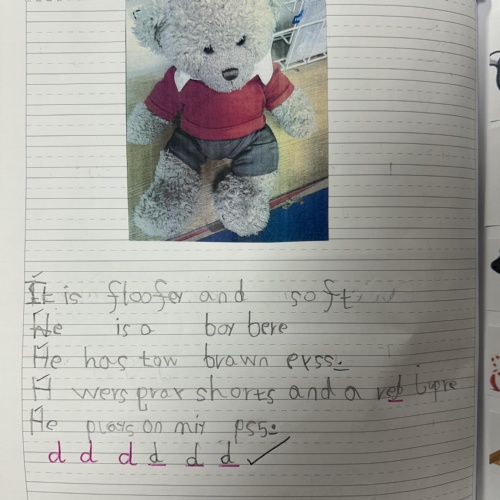 It is floofer and soft
He is a boy bere
He has tow brawn eyss.
H wers grax shorts and a reb
He plays on miy pss.
d d d d d d